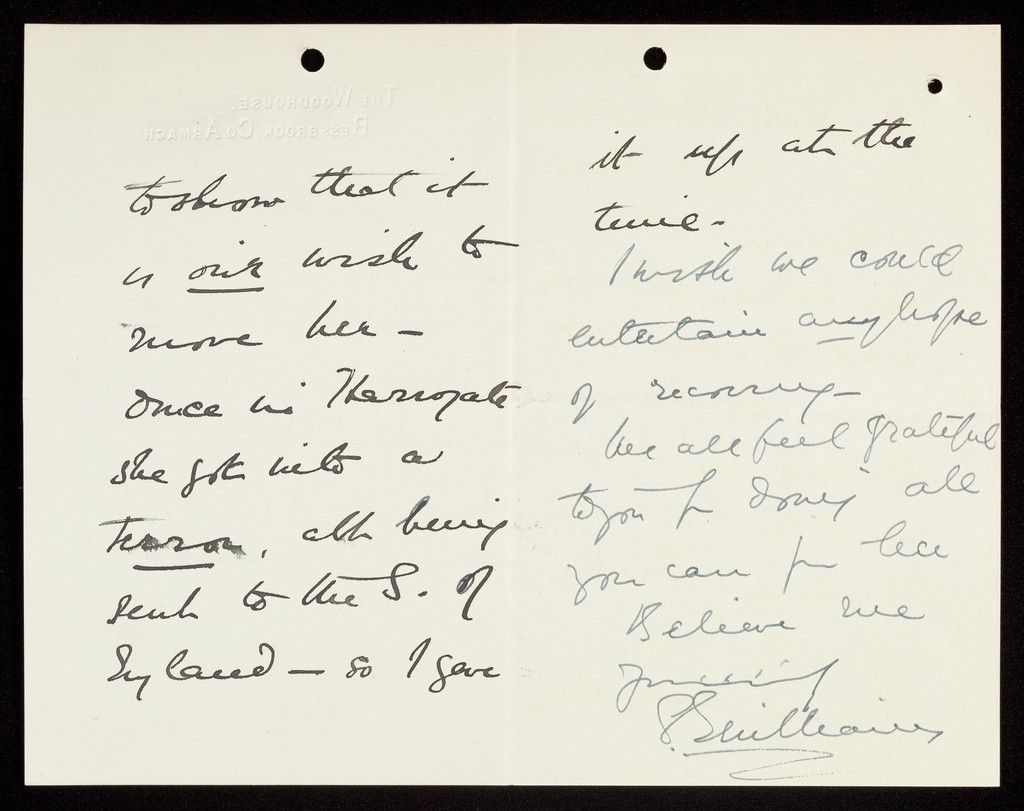 THE WOODHOUSE.
BESSBROOK CO ARMAGH
to show that it
is our wish to
move her –
Once in Harrogate
she got into a
terror, abt being
sent to the S. of
England – so I gave
it up at the
time –
I wish we could
entertain any hope
of recovery –
We all feel grateful
to you for doing all
you can for her
Believe me